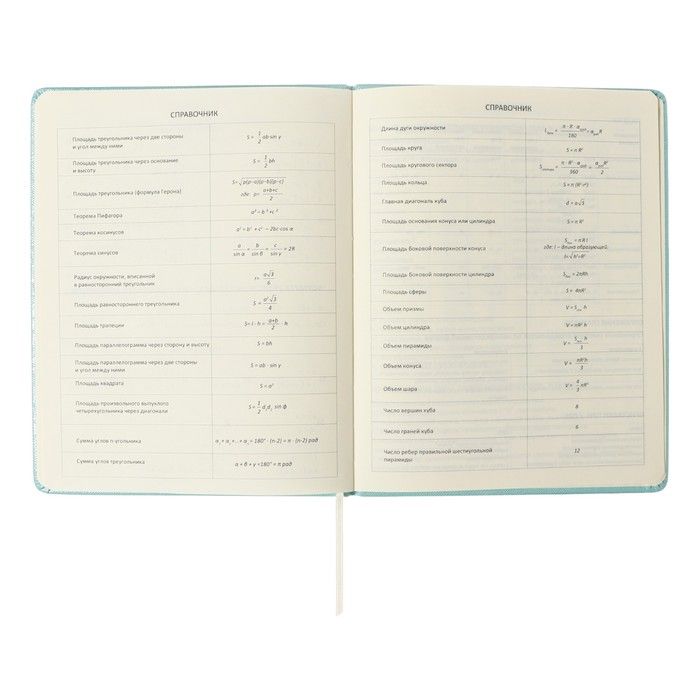 СПРАВОЧНИК
Площадь треугольника через две стороны
и угол между ними
S = 1/2 ab·sin γ
Площадь треугольника через основание
и высоту
S = 1/2 bh
Площадь треугольника (формула Герона)
S=√p(p−a)(p−b)(p−c)
где: p= a+b+c/2
Теорема Пифагора
a² = b² + c²
Теорема косинусов
a² = b² + c² − 2bc·cos α
Теорема синусов
a/sin α = b/sin β = c/sin γ = 2R
Радиус окружности, вписанной
в равносторонний треугольник
r= a√3/6
Площадь равностороннего треугольника
S = a²√3/4
Площадь трапеции
S= l · h = a+b/2 · h
Площадь параллелограмма через сторону и высоту
S = bh
Площадь параллелограмма через две стороны
и угол между ними
S = ab · sin γ
Площадь квадрата
S = a²
Площадь произвольного выпуклого
четырехугольника через диагонали
S = 1/2 d₁d₂ sin ф
Сумма углов n-угольника
α₁ + α₂+... + αₙ = 180° · (n-2) = π · (n-2) рад
Сумма углов треугольника
α + β + γ =180° = π рад
СПРАВОЧНИК
Длина дуги окружности
π · R · α/180 = R
Площадь круга
S = π R²
Площадь кругового сектора
π · R² · α/360 = R²/2
Площадь кольца
S = π (R²-r²)
Главная диагональ куба
d = a√3
Площадь основания конуса или цилиндра
S = π R²
Площадь Боковой поверхности конуса
Sбок = π R l
где: l – длина образующей.
l=√h²+R²
Площадь Боковой поверхности цилиндра
Sбок = 2πRh
Площадь сферы
S = 4πR²
Объем призмы
V = Sосн h
Объем цилиндра
V = πR² h
Объем пирамиды
V = Sосн h/3
Объем конуса
V = πR²h/3
Объем шара
V = 4/3 πR³
Число вершин куба
8
Число граней куба
6
Число ребер правильной шестиугольной
пирамиды
12